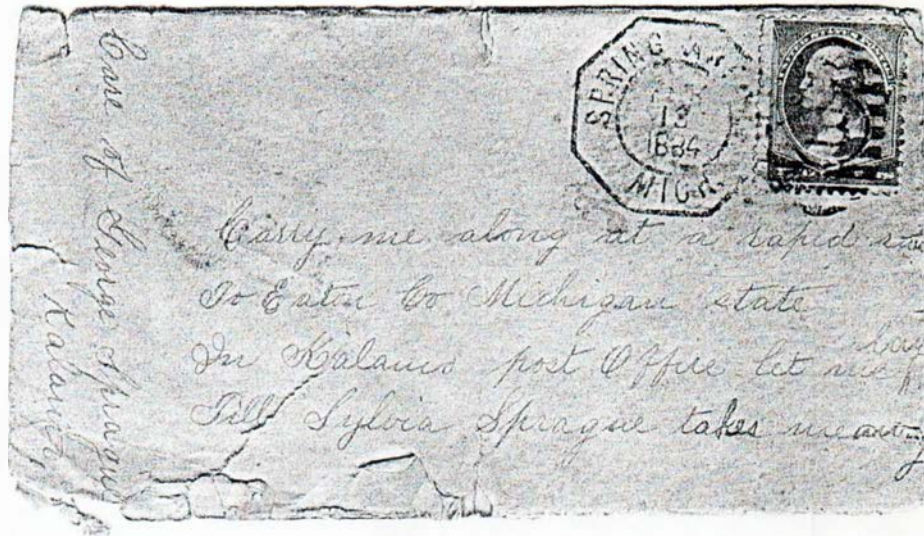 SPRING AR
13
1884
MICH.
Carry me along at a rapid
To Eaton Co Michigan state
In Kalamo post Office let me lay
Till Sylvia Sprague takes me away
Care of George Sprague
Kalamo